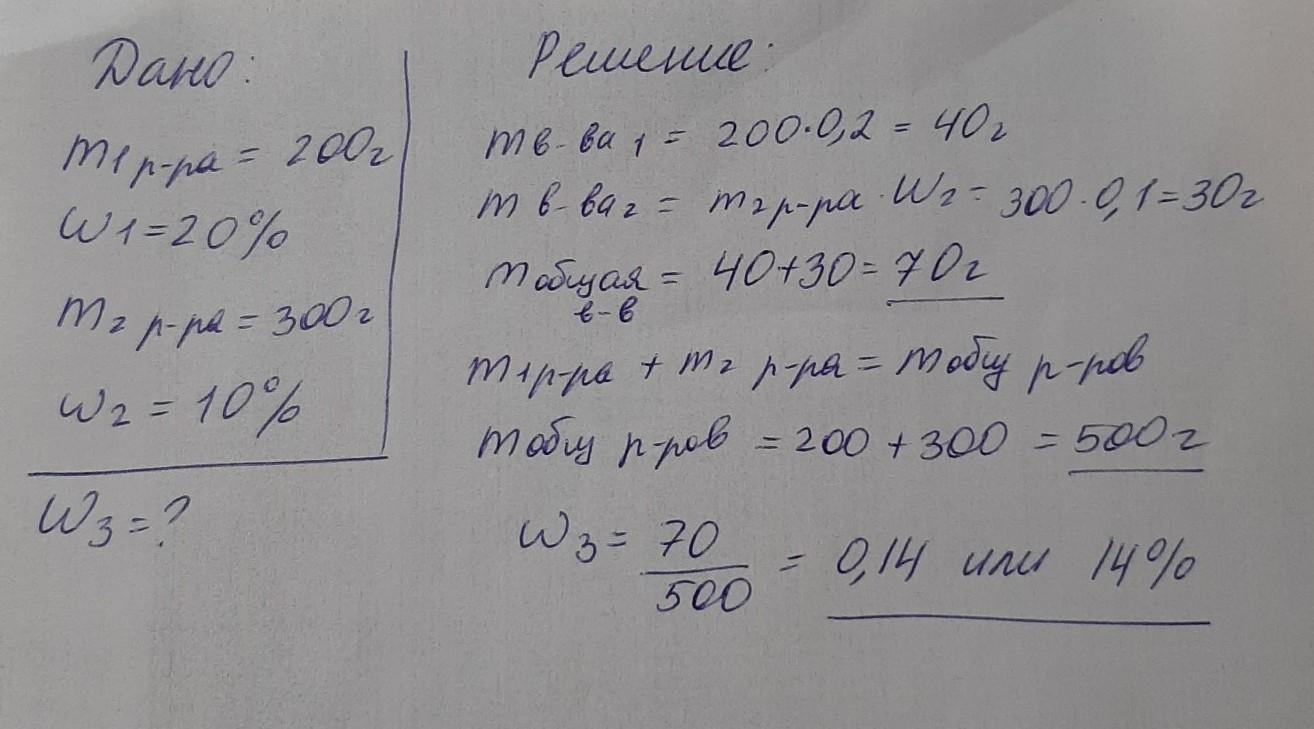 Дано:
m1 р-ра = 200г
W1=20%
m2 р-ра = 300г
W2 = 10%
W3=?
Решение:
m в-ва 1 = 200·0,2 = 40г
m в-ва2 = m2р-ра · W2 = 300·0,1=30г
m общая = 40+30= 70г
в-в
m1р-ра + m2 р-ра = m общ р-ров
m общ р-ров = 200 + 300 = 500г
W3 = 70/500 = 0,14 или 14%